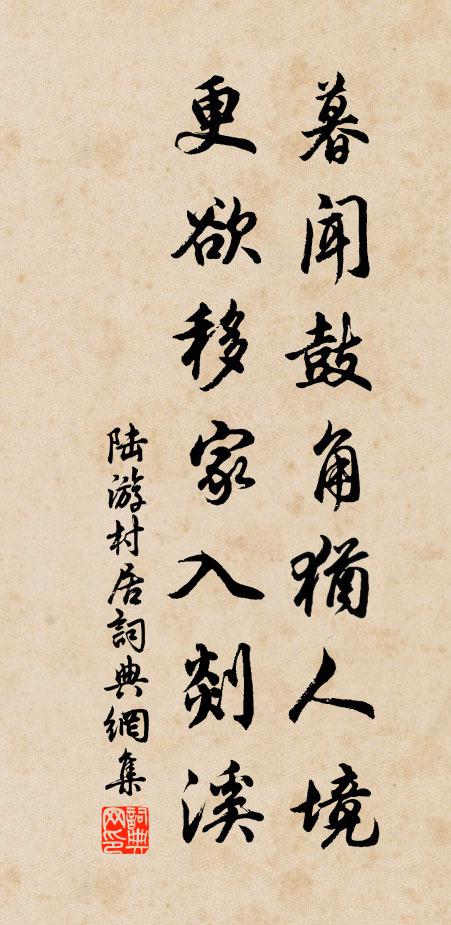 暮闻鼓角犹人境
更欲移家入剡溪
陆游村居詞典網集
詞典网印